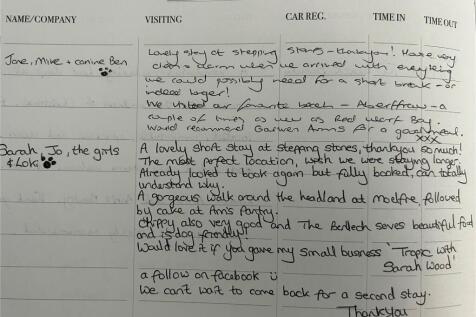 NAME/COMPANY VISITING CAR REG. TIME IN TIME OUT
Jane, Mike + canine Ben
Lovely stay at stepping stones - thankyou! House very
clean & warm when we arrived with everything
we could possibly need for a short break - or
indeed longer!
We visited our favourite beach - Aberffraw - a
couple of times as well as Red Wharf Bay.
Would recommend Gaerwen Arms for a good meal.
xxx
Sarah, Jo, the girls
& Loki
A lovely short stay at stepping stones, thankyou so much!
The most perfect location, wish we were staying longer.
Already looked to book again but fully booked, can totally
understand why.
A gorgeous walk around the headland at moelfre, followed
by cake at Ann's Pantry.
Chippy also very good and The Bertlech seves beautiful food
and is dog friendly!
Would love it if you gave my small business 'Tropic with
Sarah Wood'
a follow on facebook ü
We can't wait to come back for a second stay.
Thankyou